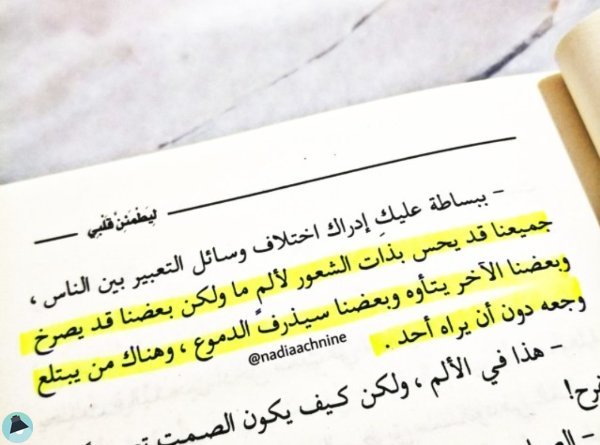 ليَطْمَئنَّ قَلْبي
- ببساطة عليكِ إدراك اختلاف وسائل التعبير بين الناس ،
جميعنا قد يحس بذات الشعور لألمٍ ما ولكن بعضنا قد يصرخ
وبعضنا الآخر يتأوه وبعضنا سيذرف الدموع ، وهناك من يبتلع
وجعه دون أن يراه أحد .
@nadiaachnine
- هذا في الألم ، ولكن كيف يكون الصمت
فرح!